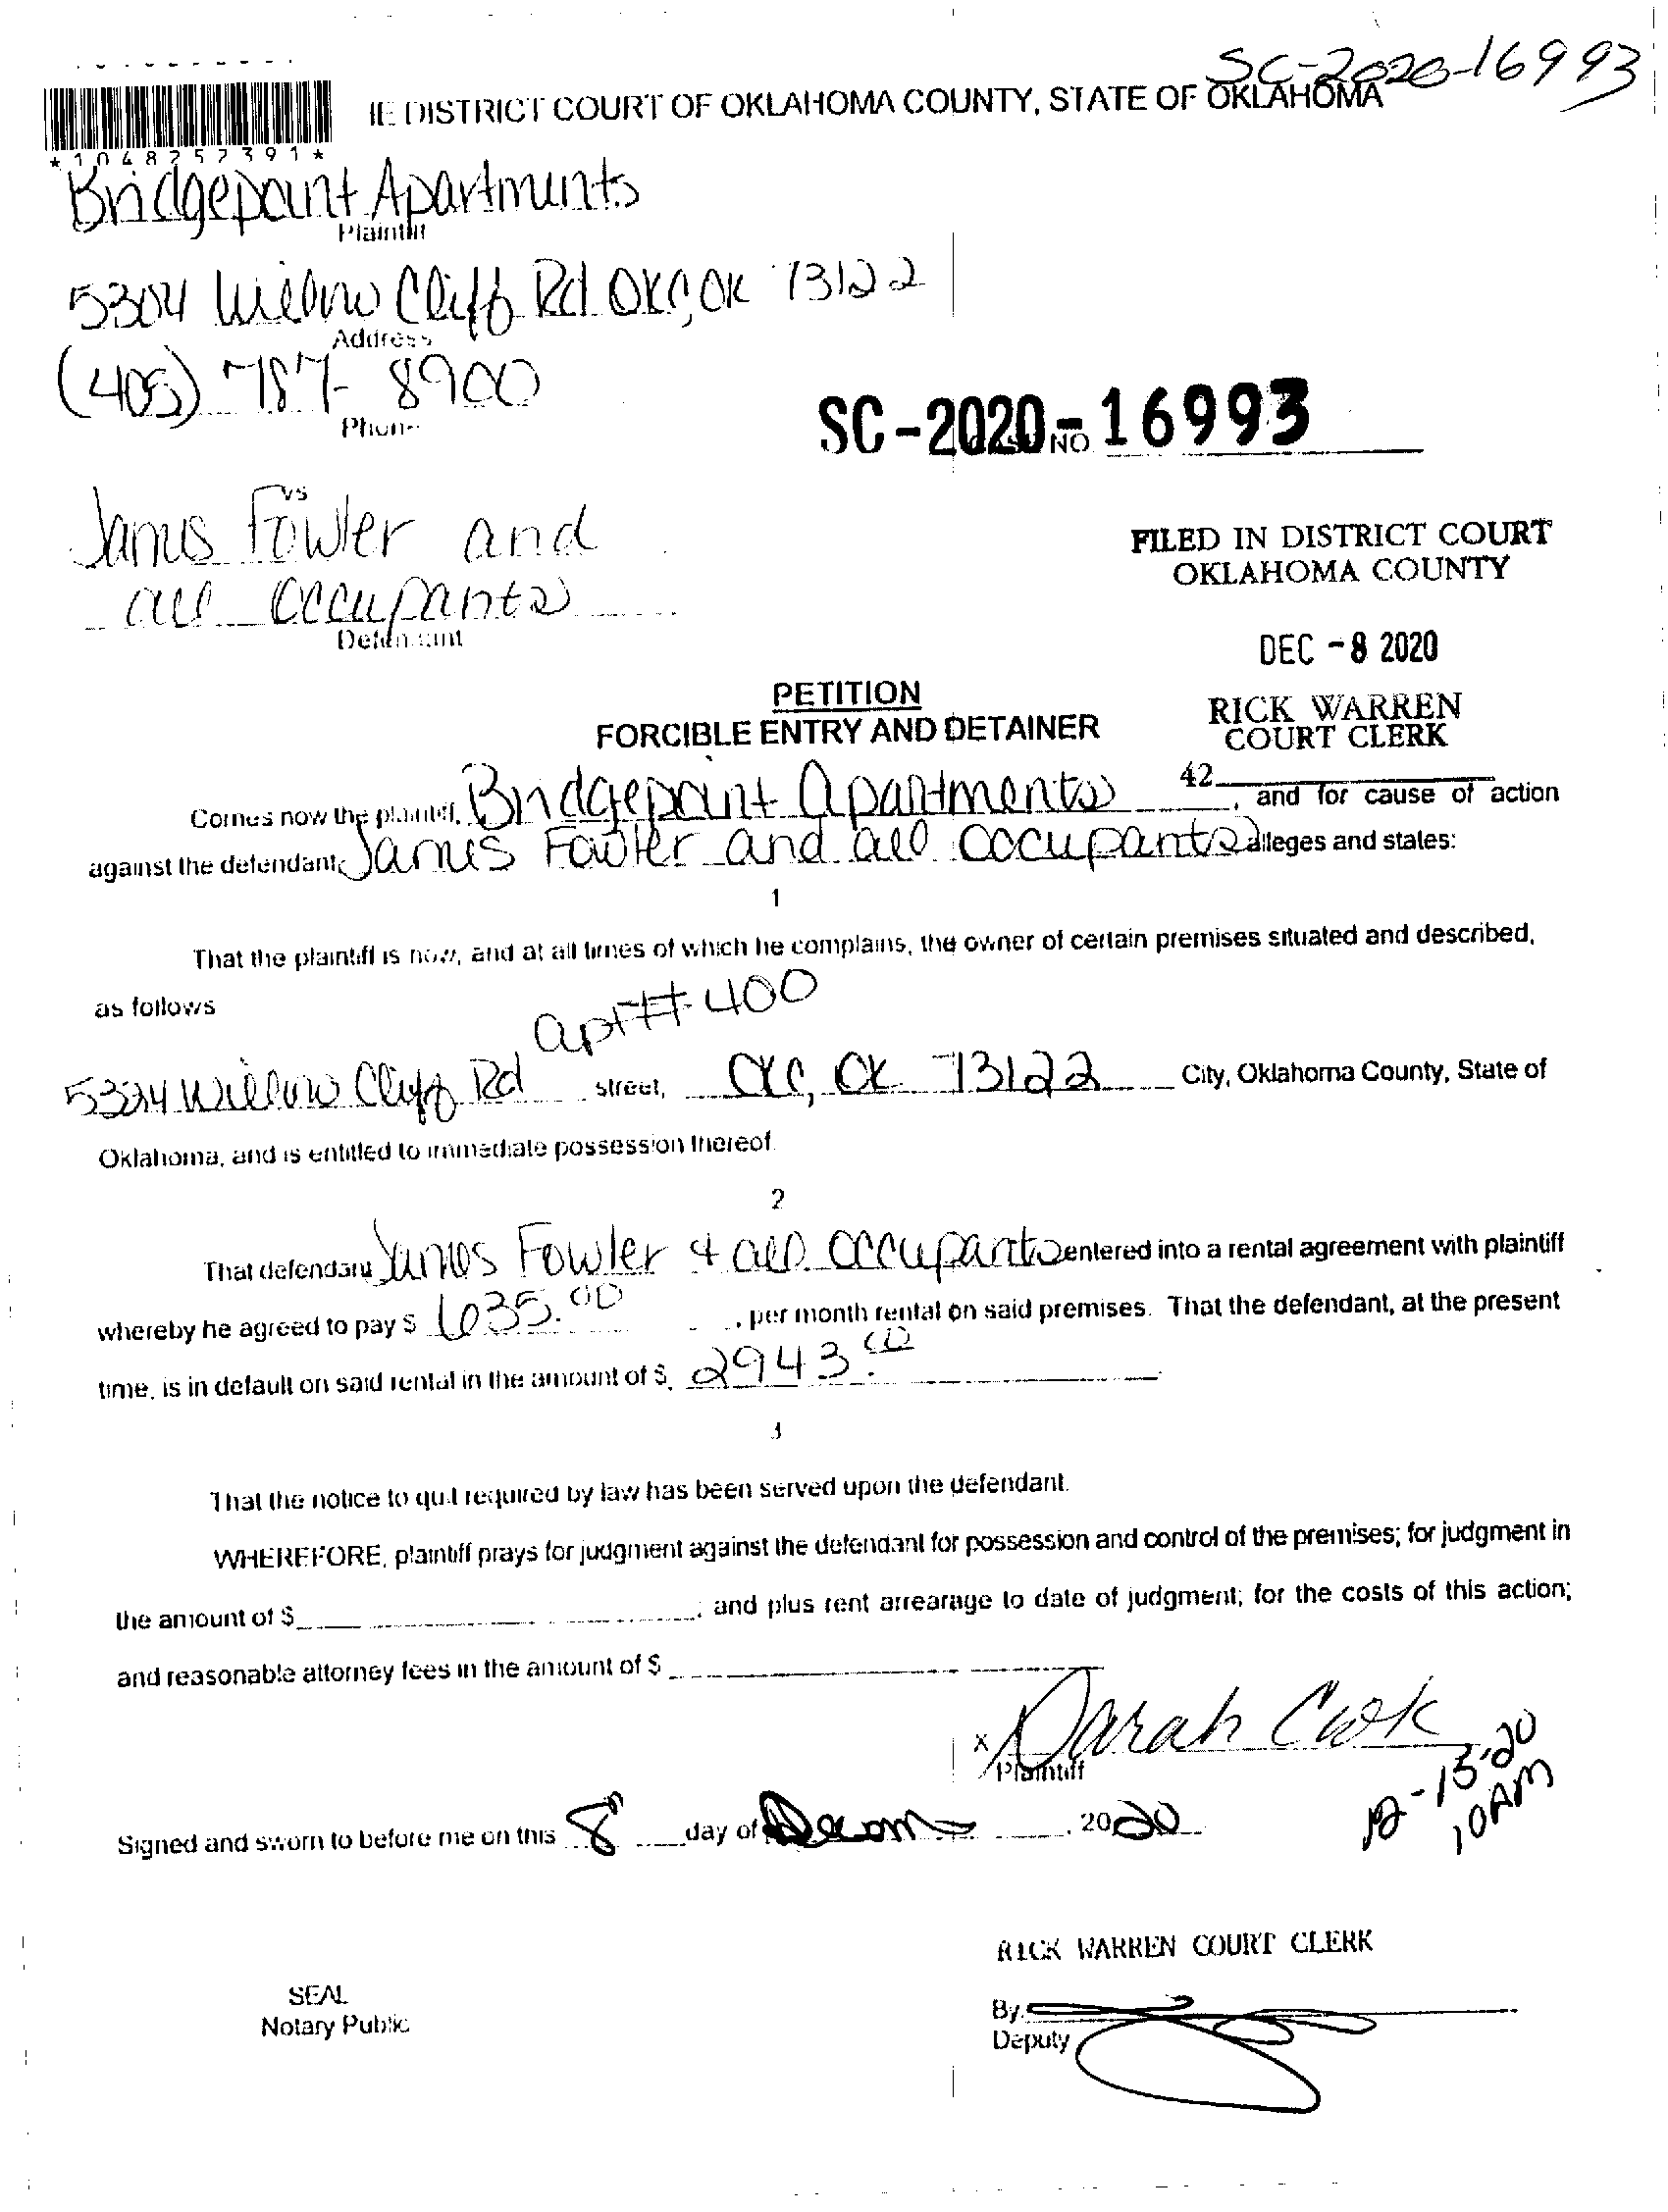 SC-2020-16993
IE DISTRICT COURT OF OKLAHOMA COUNTY, STATE OF OKLAHOMA
*1048257391*
Bridgepoint Apartments
Plaintiff
5304 Willow Cliff Rd OKC, OK 73122
Address
(405) 787-8900
Phone
SC-2020-16993
CASE NO.
vs
James Fowler and
all occupants
Defendant
FILED IN DISTRICT COURT
OKLAHOMA COUNTY
DEC -8 2020
RICK WARREN
COURT CLERK
42
PETITION
FORCIBLE ENTRY AND DETAINER
Comes now the plaintiff, Bridgepoint Apartments, and for cause of action
against the defendant, James Fowler and all occupants alleges and states:
1
That the plaintiff is now, and at all times of which he complains, the owner of certain premises situated and described,
as follows
apt# 400
Willow Cliff Rd street, OKC, OK 73122 City, Oklahoma County, State of
Oklahoma, and is entitled to immediate possession thereof.
2
That defendant James Fowler & all occupants entered into a rental agreement with plaintiff
whereby he agreed to pay $ 635.00, per month rental on said premises. That the defendant, at the present
time, is in default on said rental in the amount of $ 2943.00.
3
That the notice to quit required by law has been served upon the defendant.
WHEREFORE, plaintiff prays for judgment against the defendant for possession and control of the premises; for judgment in
the amount of $ ; and plus rent arrearage to date of judgment; for the costs of this action;
and reasonable attorney fees in the amount of $
x Sarah Cook
Plaintiff
10AM
Signed and sworn to before me on this 8 day of 2020
RICK WARREN COURT CLERK
SEAL
Notary Public
By:
Deputy